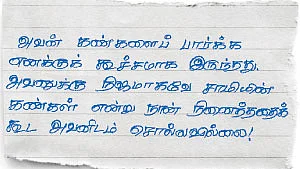 அவன் கண்களைப் பார்க்க
எனக்குக் கூச்சமாக இருந்தது.
அவனுக்கு நிஜமாகவே சாமியின்
கண்கள் என்று நான் நினைத்ததைக்
கூட அவனிடம் சொல்லவில்லை!